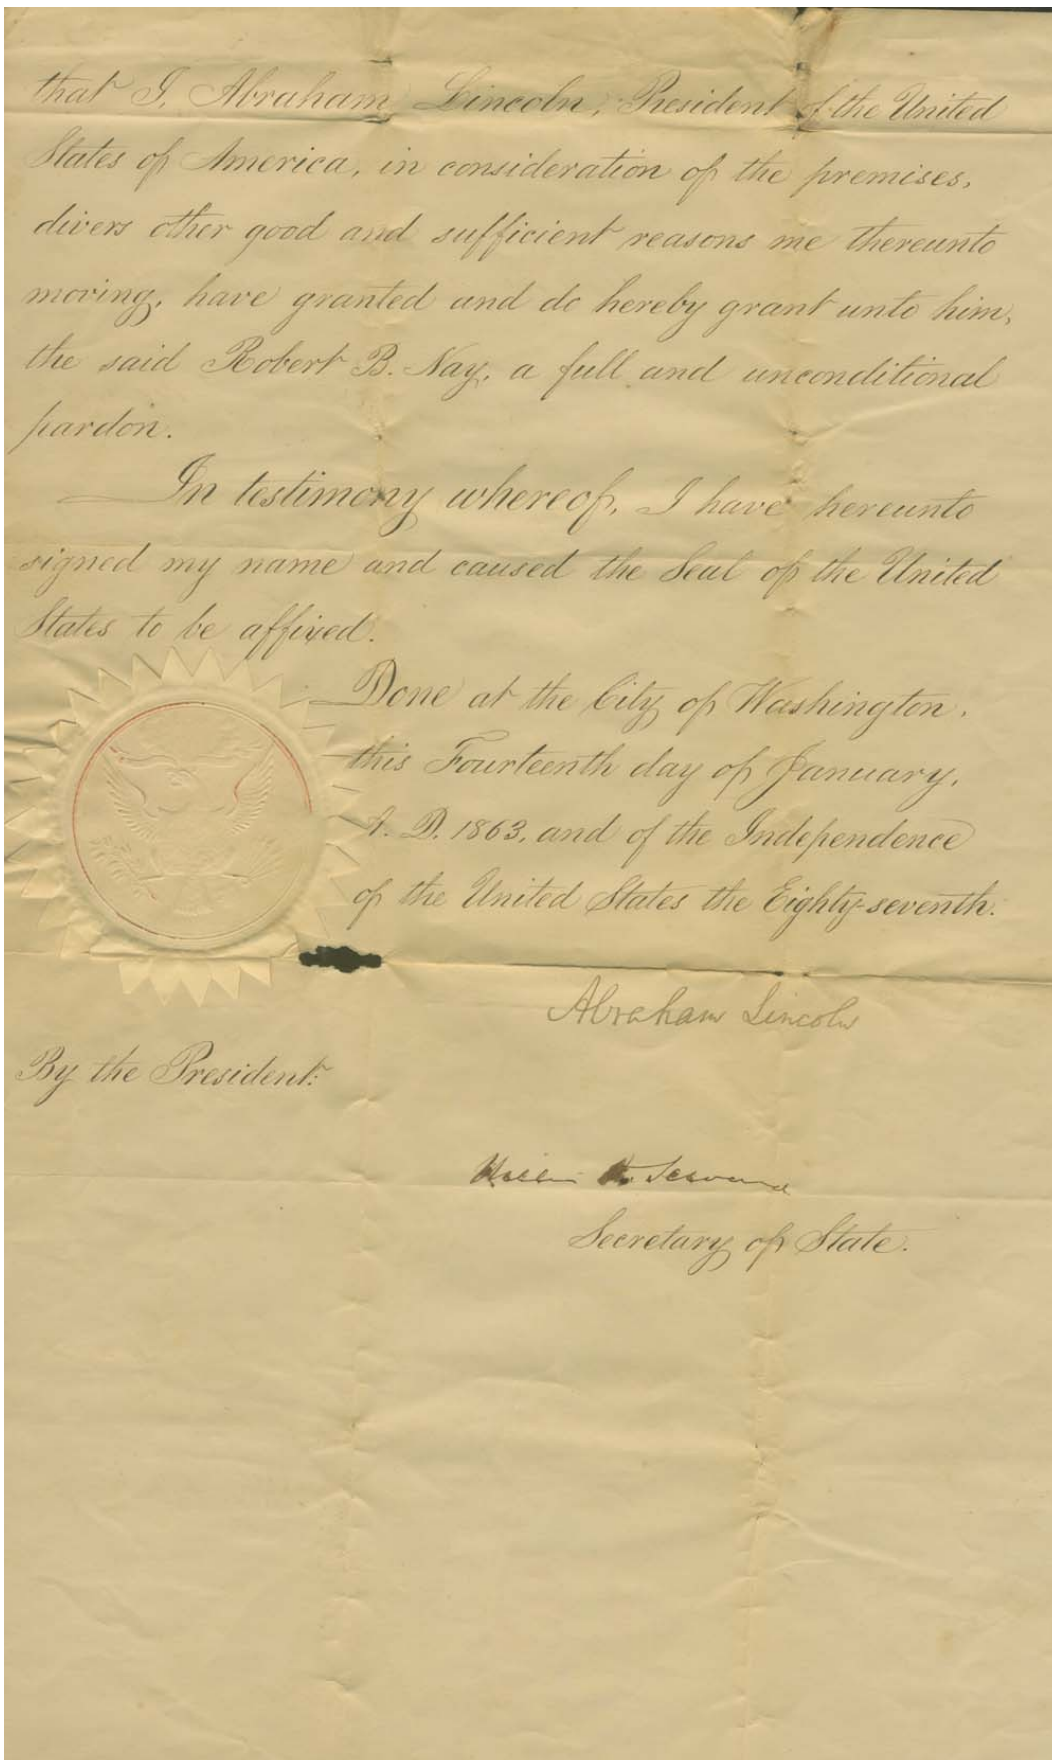 that I, Abraham Lincoln, President of the United
States of America, in consideration of the premises,
divers other good and sufficient reasons me thereunto
moving, have granted and do hereby grant unto him,
the said Robert B. Nay, a full and unconditional
pardon.
In testimony whereof, I have hereunto
signed my name and caused the Seal of the United
States to be affixed.
Done at the City of Washington,
this Fourteenth day of January,
A. D. 1863, and of the Independence
of the United States the Eighty-seventh.
Abraham Lincoln
By the President:
William H. Seward
Secretary of State.